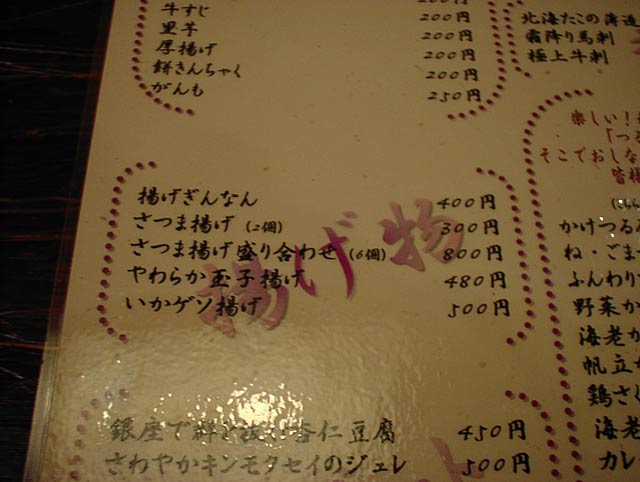 牛すじ 200円
里芋 200円
厚揚げ 200円
餅きんちゃく 200円
がんも 250円
揚げ物
揚げぎんなん 400円
さつま揚げ(2個) 300円
さつま揚げ盛り合わせ(6個) 800円
やわらか玉子揚げ 480円
いかゲソ揚げ 500円
銀座で杏仁豆腐 450円
さわやかキンモクセイのジュレ 500円
北海たこの薄造
霜降り馬刺
極上牛刺
楽しい!
「つる
そこでおしな
皆様
かけつる
ね・ごま
ふんわり
野菜か
海老か
帆立か
鶏さく
海老
カレ